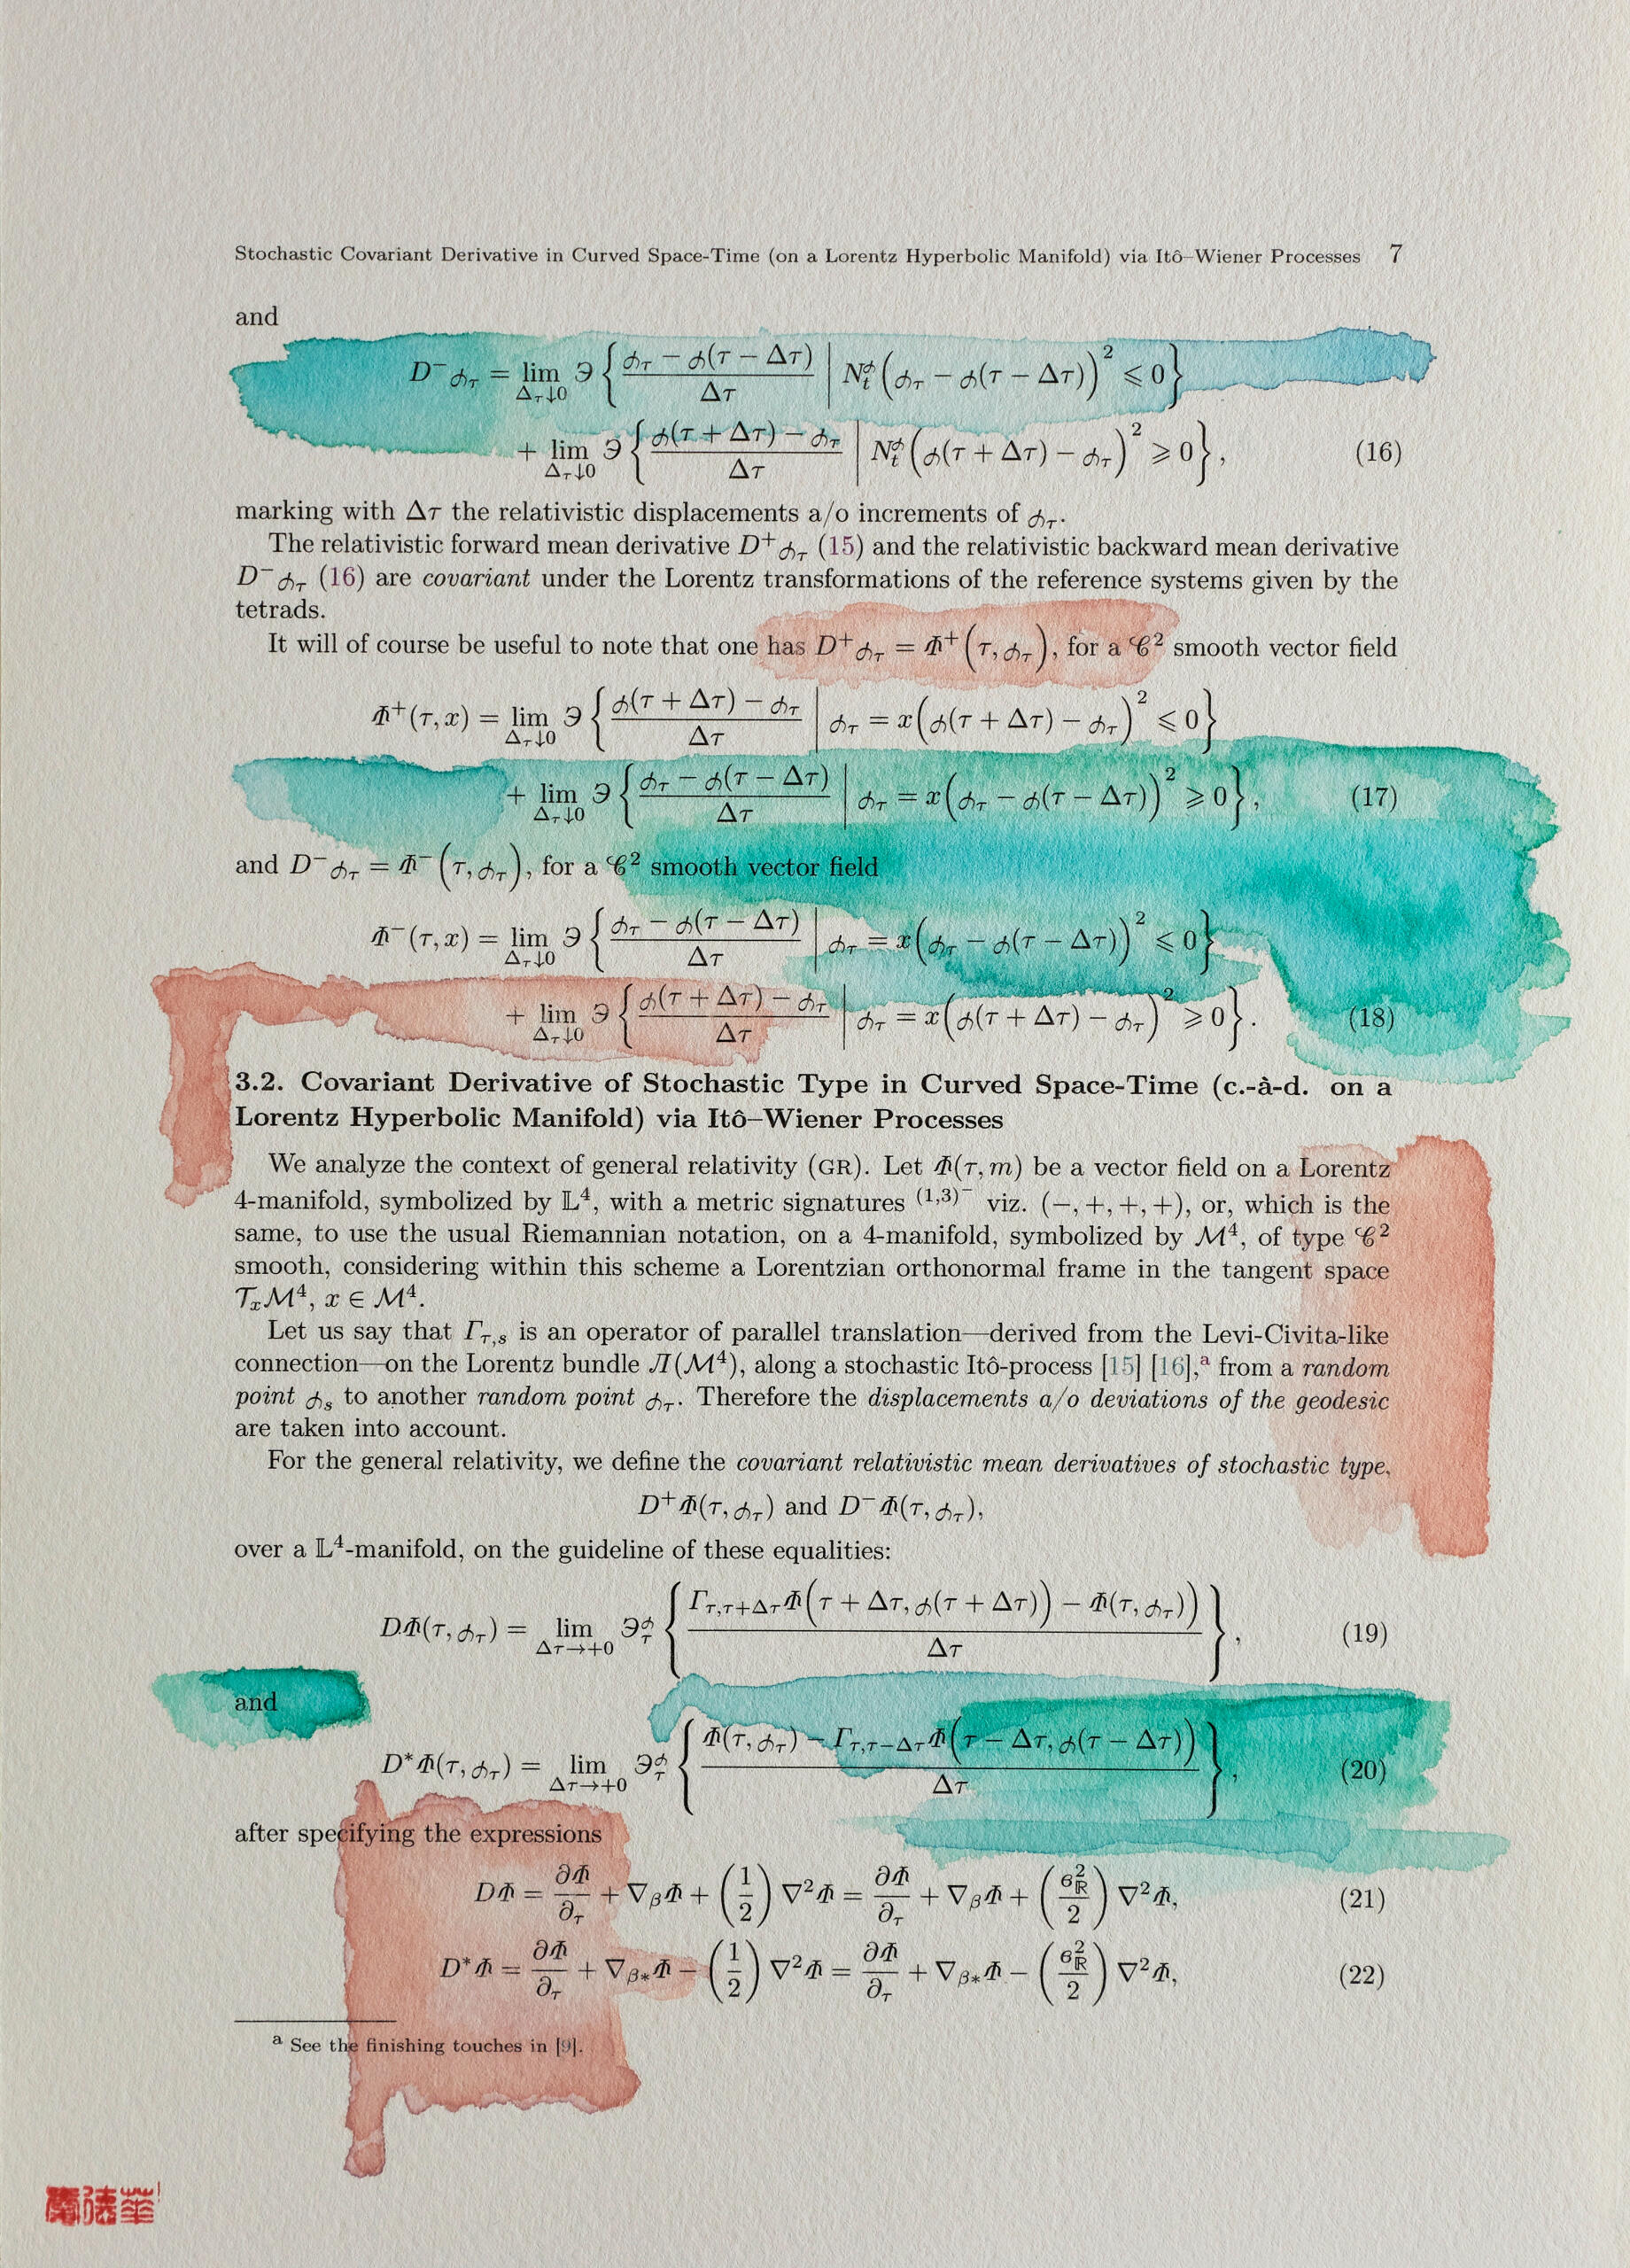 Stochastic Covariant Derivative in Curved Space-Time (on a Lorentz Hyperbolic Manifold) via Itô–Wiener Processes 7
and
D⁻ 𝜙_τ = lim_{Δτ↓0} Э { (𝜙_τ − 𝜙(τ − Δτ)) / Δτ | N_t^𝜙 (𝜙_τ − 𝜙(τ − Δτ))² ⩽ 0 }
+ lim_{Δτ↓0} Э { (𝜙(τ + Δτ) − 𝜙_τ) / Δτ | N_t^𝜙 (𝜙(τ + Δτ) − 𝜙_τ)² ⩾ 0 }, (16)
marking with Δτ the relativistic displacements a/o increments of 𝜙_τ.
The relativistic forward mean derivative D⁺𝜙_τ (15) and the relativistic backward mean derivative
D⁻𝜙_τ (16) are covariant under the Lorentz transformations of the reference systems given by the
tetrads.
It will of course be useful to note that one has D⁺𝜙_τ = Φ⁺(τ, 𝜙_τ), for a 𝒞² smooth vector field
Φ⁺(τ, x) = lim_{Δτ↓0} Э { (𝜙(τ + Δτ) − 𝜙_τ) / Δτ | 𝜙_τ = x(𝜙(τ + Δτ) − 𝜙_τ)² ⩽ 0 }
+ lim_{Δτ↓0} Э { (𝜙_τ − 𝜙(τ − Δτ)) / Δτ | 𝜙_τ = x(𝜙_τ − 𝜙(τ − Δτ))² ⩾ 0 }, (17)
and D⁻𝜙_τ = Φ⁻(τ, 𝜙_τ), for a 𝒞² smooth vector field
Φ⁻(τ, x) = lim_{Δτ↓0} Э { (𝜙_τ − 𝜙(τ − Δτ)) / Δτ | 𝜙_τ = x(𝜙_τ − 𝜙(τ − Δτ))² ⩽ 0 }
+ lim_{Δτ↓0} Э { (𝜙(τ + Δτ) − 𝜙_τ) / Δτ | 𝜙_τ = x(𝜙(τ + Δτ) − 𝜙_τ)² ⩾ 0 }. (18)
3.2. Covariant Derivative of Stochastic Type in Curved Space-Time (c.-à-d. on a
Lorentz Hyperbolic Manifold) via Itô–Wiener Processes
We analyze the context of general relativity (GR). Let Φ(τ, m) be a vector field on a Lorentz
4-manifold, symbolized by 𝕃⁴, with a metric signatures ⁽¹,³⁾⁻ viz. (−, +, +, +), or, which is the
same, to use the usual Riemannian notation, on a 4-manifold, symbolized by ℳ⁴, of type 𝒞²
smooth, considering within this scheme a Lorentzian orthonormal frame in the tangent space
𝒯ₓℳ⁴, x ∈ ℳ⁴.
Let us say that Γ_{τ,s} is an operator of parallel translation—derived from the Levi-Civita-like
connection—on the Lorentz bundle Л(ℳ⁴), along a stochastic Itô-process [15] [16],ᵃ from a random
point 𝜙_s to another random point 𝜙_τ. Therefore the displacements a/o deviations of the geodesic
are taken into account.
For the general relativity, we define the covariant relativistic mean derivatives of stochastic type,
D⁺Φ(τ, 𝜙_τ) and D⁻Φ(τ, 𝜙_τ),
over a 𝕃⁴-manifold, on the guideline of these equalities:
DΦ(τ, 𝜙_τ) = lim_{Δτ→+0} Э_τ^𝜙 { (Γ_{τ,τ+Δτ}Φ(τ + Δτ, 𝜙(τ + Δτ)) − Φ(τ, 𝜙_τ)) / Δτ }, (19)
and
D*Φ(τ, 𝜙_τ) = lim_{Δτ→+0} Э_τ^𝜙 { (Φ(τ, 𝜙_τ) − Γ_{τ,τ−Δτ}Φ(τ − Δτ, 𝜙(τ − Δτ))) / Δτ }, (20)
after specifying the expressions
DΦ = ∂Φ/∂_τ + ∇_βΦ + (1/2) ∇²Φ = ∂Φ/∂_τ + ∇_βΦ + (ϭ²_ℝ/2) ∇²Φ, (21)
D*Φ = ∂Φ/∂_τ + ∇_{β*}Φ − (1/2) ∇²Φ = ∂Φ/∂_τ + ∇_{β*}Φ − (ϭ²_ℝ/2) ∇²Φ, (22)
ᵃ See the finishing touches in [9].